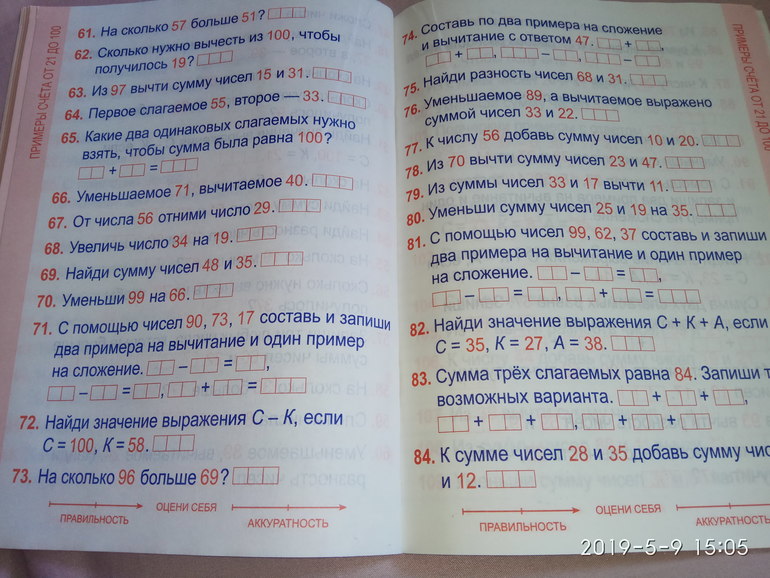 ПРИМЕРЫ СЧЁТА ОТ 21 ДО 100
61. На сколько 57 больше 51?
62. Сколько нужно вычесть из 100, чтобы
получилось 19?
63. Из 97 вычти сумму чисел 15 и 31.
64. Первое слагаемое 55, второе — 33.
65. Какие два одинаковых слагаемых нужно
взять, чтобы сумма была равна 100?
+ =
66. Уменьшаемое 71, вычитаемое 40.
67. От числа 56 отними число 29.
68. Увеличь число 34 на 19.
69. Найди сумму чисел 48 и 35.
70. Уменьши 99 на 66.
71. С помощью чисел 90, 73, 17 составь и запиши
два примера на вычитание и один пример
на сложение. – = ,
– = , + =
72. Найди значение выражения С – К, если
С = 100, К = 58.
73. На сколько 96 больше 69?
ПРАВИЛЬНОСТЬ ОЦЕНИ СЕБЯ АККУРАТНОСТЬ
74. Составь по два примера на сложение
и вычитание с ответом 47. + ,
+ , – , –
75. Найди разность чисел 68 и 31.
76. Уменьшаемое 89, а вычитаемое выражено
суммой чисел 33 и 22.
77. К числу 56 добавь сумму чисел 10 и 20.
78. Из 70 вычти сумму чисел 23 и 47.
79. Из суммы чисел 33 и 17 вычти 11.
80. Уменьши сумму чисел 25 и 19 на 35.
81. С помощью чисел 99, 62, 37 составь и запиши
два примера на вычитание и один пример
на сложение. – = ,
– = , + =
82. Найди значение выражения С + К + А, если
С = 35, К = 27, А = 38.
83. Сумма трёх слагаемых равна 84. Запиши т
возможных варианта. + + ,
+ + , + +
84. К сумме чисел 28 и 35 добавь сумму чис
и 12.
ПРАВИЛЬНОСТЬ ОЦЕНИ СЕБЯ АККУРАТНОСТЬ
ПРИМЕРЫ СЧЁТА ОТ 21 ДО 100
2019-5-9 15:05